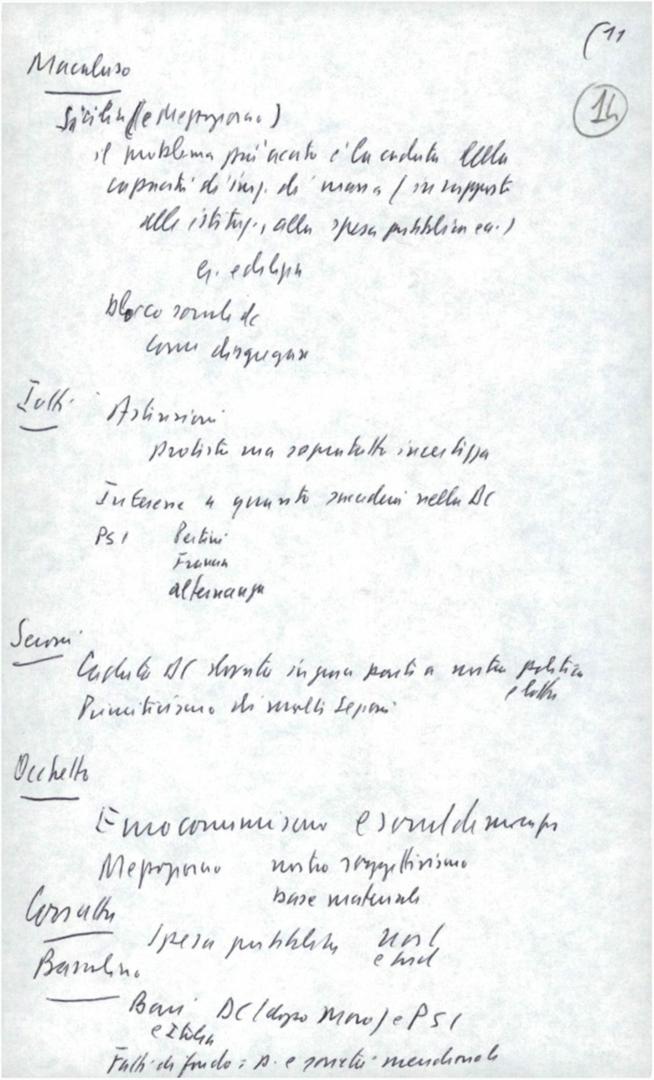 (11
14
Macaluso
Sicilia (e Mezzogiorno)
il problema più acuto è la caduta della
capacità di iniz. di massa (in rapporto
alle istituz., alla spesa pubblica ecc.)
es. edilizia
blocco sociale dc
come disgregare
Iotti
Astensioni
protesta ma soprattutto incertezza
Interesse a quanto succederà nella DC
PSI Pertini
Francia
alternanza
Seroni
Caduta DC dovuta in gran parte a nostra politica
e lotte
Primitivismo di molti
Occhetto
Eurocomunismo e socialdemocrazia
Mezzogiorno nostro soggettivismo
base materiale
Spesa pubblica nord
e sud
Bassolino
Bari DC (dopo Moro) e PSI
Fatti di fondo: e società meridionale